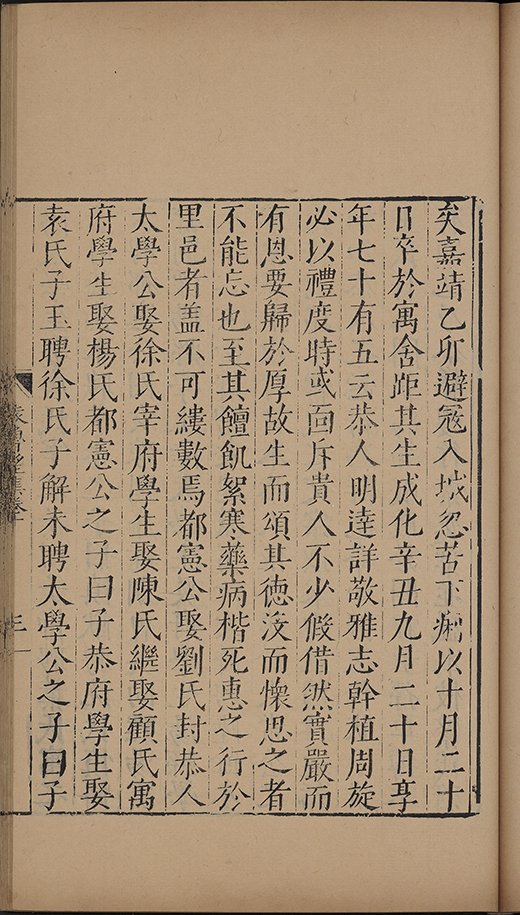 矣嘉靖乙卯避冦入城忽苦下痢以十月二十
日卒於寓舍距其生成化辛丑九月二十日享
年七十有五云恭人明達詳敬雅志幹植周旋
必以禮度時或面斥貴人不少假借然實嚴而
有恩要歸於厚故生而頌其徳沒而懷思之者
不能忘也至其饘飢絮寒藥病楷死惠之行於
里邑者盖不可縷數焉都憲公娶劉氏封恭人
太學公娶徐氏宰府學生娶陳氏繼娶顧氏寓
府學生娶楊氏都憲公之子曰子恭府學生娶
袁氏子玉聘徐氏子解未聘太學公之子曰子